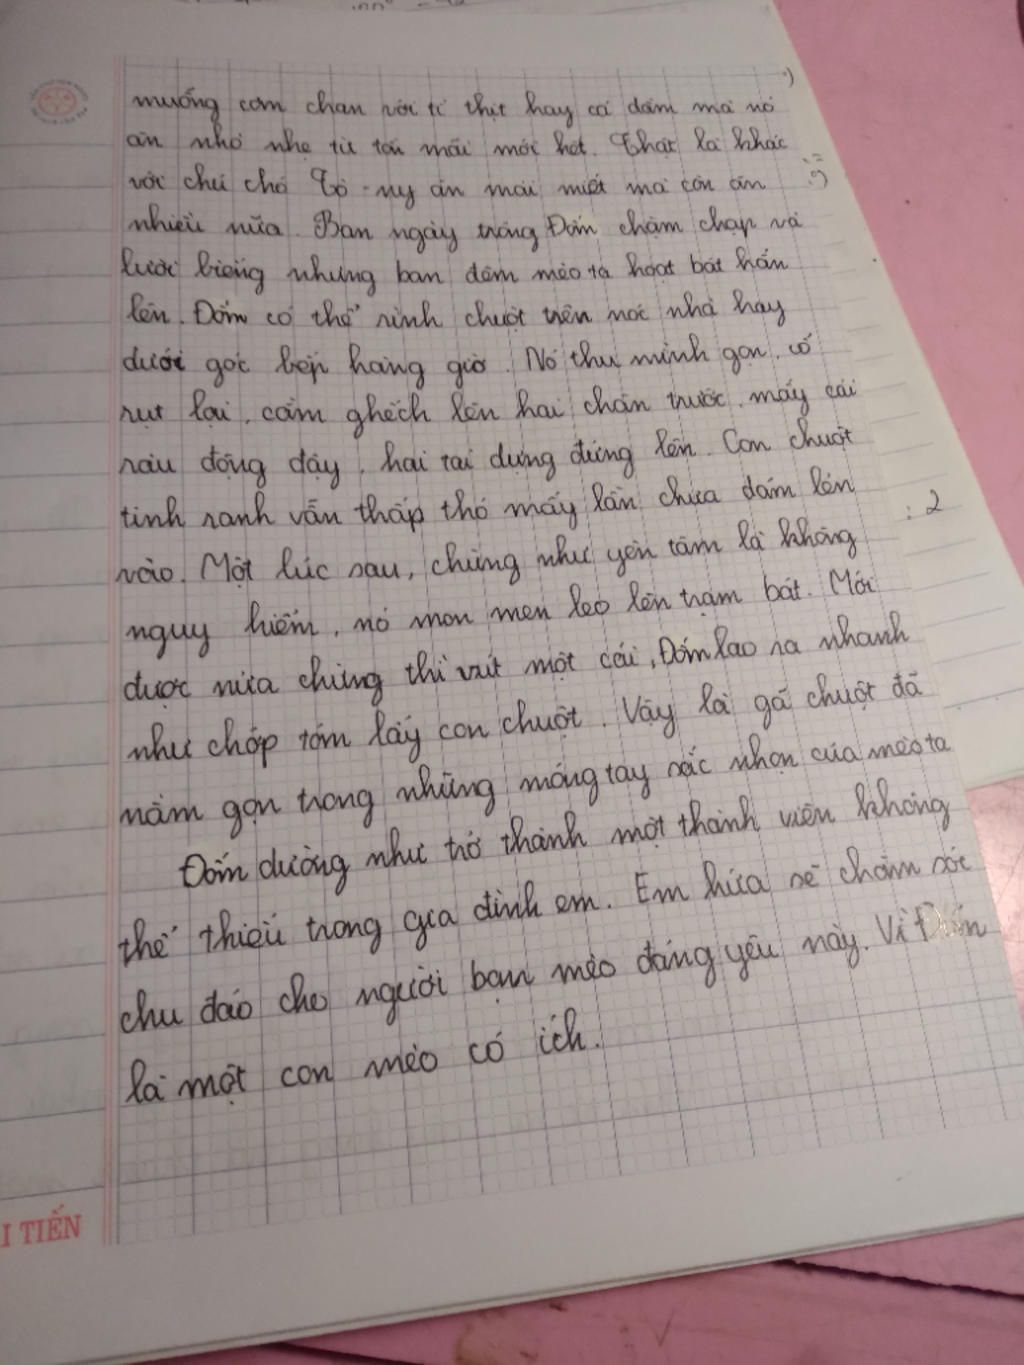 muống cơm chan với tí thịt hay cá dầm mà nó
ăn nhỏ nhẹ từ tốn mãi mới hết. Thật là khác
với chú chó Tô-ny ăn mải miết mà còn ăn
nhiều nữa. Ban ngày trông Đốm chậm chạp và
lười biếng nhưng ban đêm mèo ta hoạt bát hẳn
lên. Đốm có thể rình chuột trên nóc nhà hay
dưới góc bếp hàng giờ. Nó thu mình gọn, cổ
rụt lại, cằm ghếch lên hai chân trước, mấy cái
râu động đậy, hai tai dựng đứng lên. Con chuột
tinh ranh vẫn thấp thó mấy lần chưa dám lẻn
vào. Một lúc sau, chừng như yên tâm là không
nguy hiểm, nó mon men leo lên trạm bát. Mới
được nửa chừng thì vút một cái, Đốm lao ra nhanh
như chớp tóm lấy con chuột. Vậy là gã chuột đã
nằm gọn trong những móng tay sắc nhọn của mèo ta
Đốm dường như trở thành một thành viên không
thể thiếu trong gia đình em. Em hứa sẽ chăm sóc
chu đáo cho người bạn mèo đáng yêu này. Vì Đốm
là một con mèo có ích.
: 2
I TIẾN